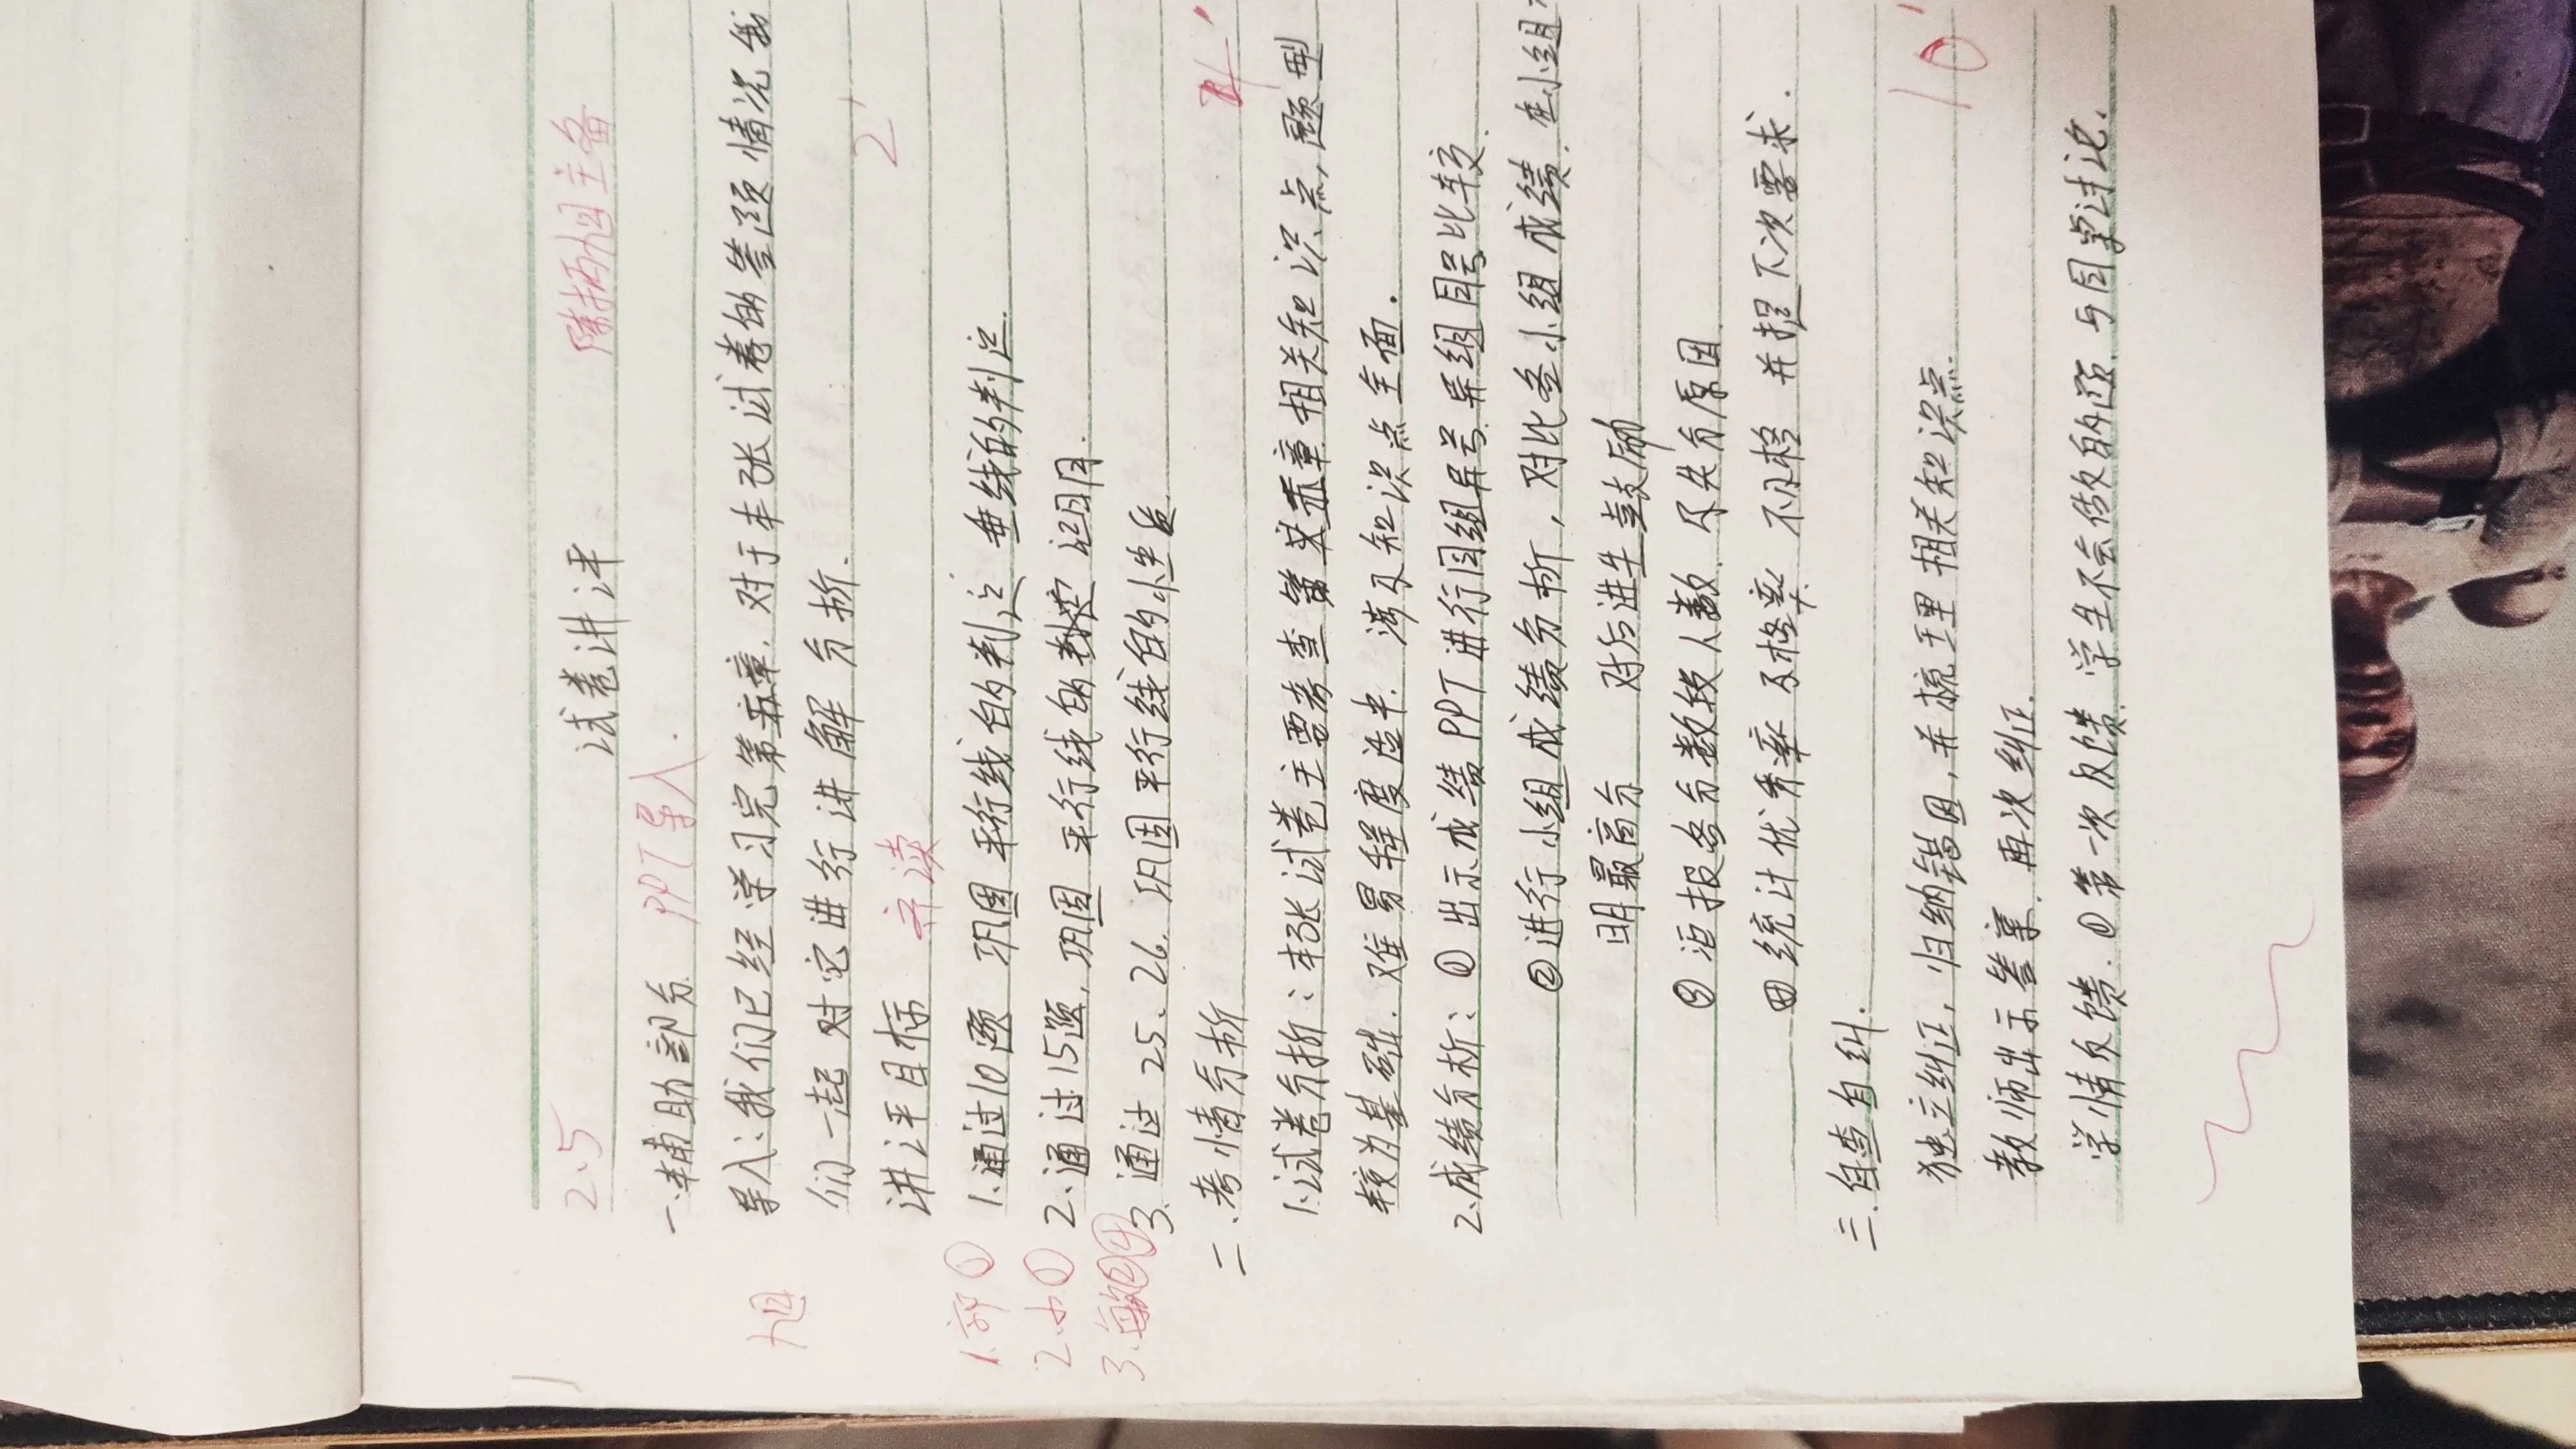 2.5 试卷讲评 主备
一.辅助部分. PPT导入.
导入:我们已经学习完第五章.对于本张试卷的答题情况我
们一起对它进行讲解分析. 2'
讲评目标 齐读
1.通过10题 巩固平行线的判定 垂线的判定.
2.通过15题,巩固 平行线的判定 证明.
3.通过25、26.巩固平行线的性质.
二.考情分析 4'
1.试卷分析:本张试卷主要考查第五章相关知识点,题型
较为基础.难易程度适中.涉及知识点全面.
2.成绩分析:①出示成绩PPT进行同组异号.异组同号比较.
②进行小组成绩分析,对比各小组成绩.在小组
明最高分 对后进生鼓励
③汇报各分数段人数.及失分原因.
④统计优秀率 及格率 不及格 并提下次要求.
三.自查自纠. 10'
独立纠正,归纳错因,并梳理相关知识点.
教师出示答案.再次纠正.
学情反馈.①第一次反馈.学生不会做的题.与同桌讨论.